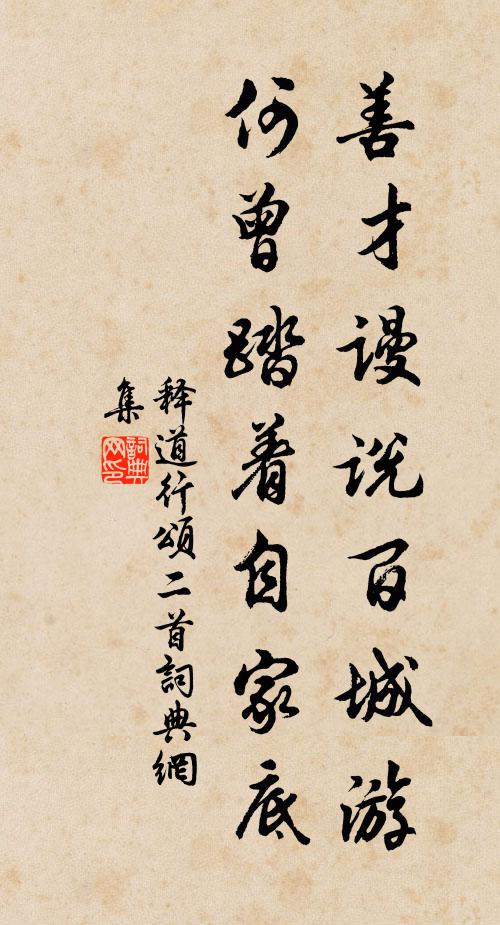 善才谩说百城游
何曾踏着自家底
释道行颂二首詞典網
集
詞典
网印